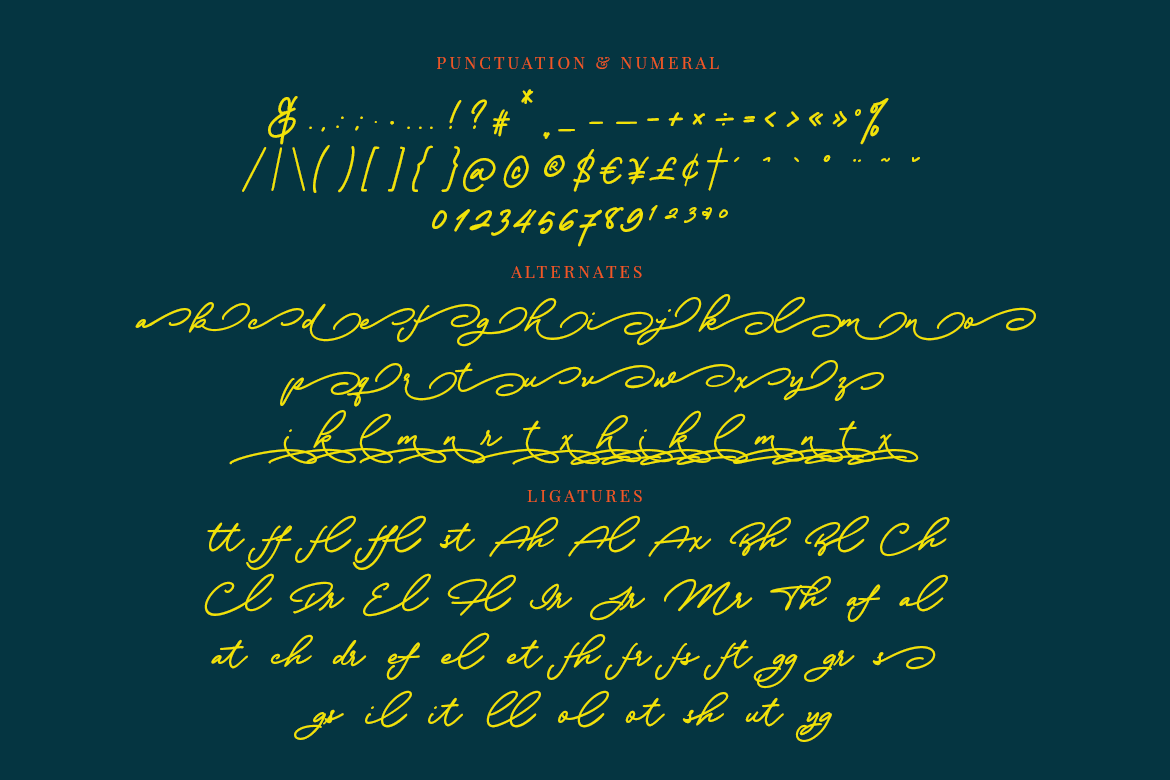 PUNCTUATION & NUMERAL
& . , : ; · • ... ! ? # * „ _ – — - + × ÷ = < > « » ° %
/ | \ ( ) [ ] { } @ © ® $ € ¥ £ ¢ † ´ ˆ ` ˚ ¨ ~ ˇ
0 1 2 3 4 5 6 7 8 9 ¹ ² ³ ª º
ALTERNATES
a b c d e f g h i j k l m n o
p q r t u v w x y z
i k l m n r t x h i k l m n t x
LIGATURES
tt ff fl ffl st Ah Al Ax Bh Bl Ch
Cl Dr El Hl Ir Jr Mr Th af al
at ch dr ef el et fh fr fs ft gg gr s
gs il it ll ol ot sh ut yg